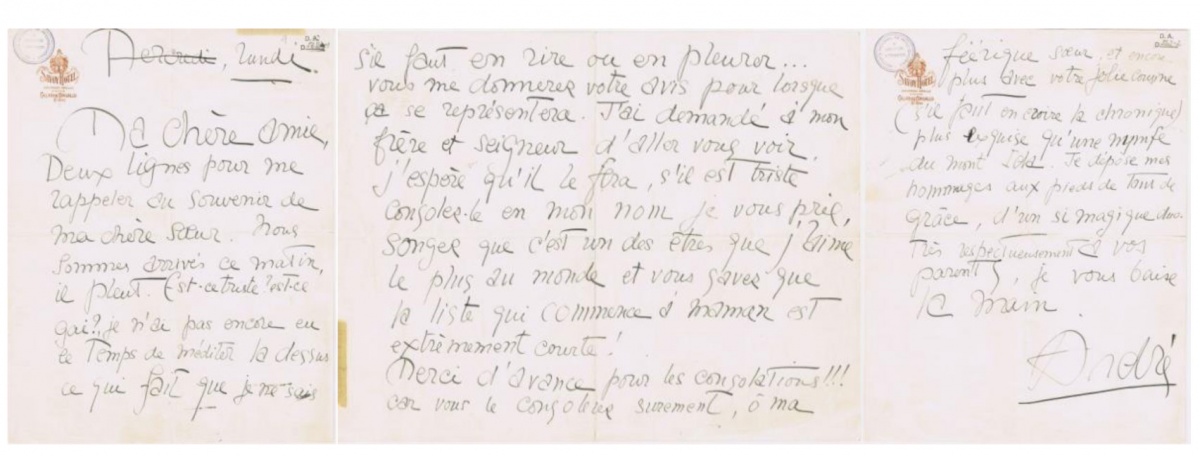 Mercredi, lundi.
Ma chère amie,
Deux lignes pour me
rappeler au souvenir de
ma chère sœur. Nous
sommes arrivés ce matin,
il pleut. Est-ce triste? est-ce
gai? je n'ai pas encore eu
le temps de méditer la dessus
ce qui fait que je ne sais
s'il faut en rire ou en pleurer...
vous me donnerez votre avis pour lorsque
ça se représentera. J'ai demandé à mon
frère et seigneur d'aller vous voir,
j'espère qu'il le fera, s'il est triste
consolez-le en mon nom je vous prie,
songez que c'est un des êtres que j'aime
le plus au monde et vous savez que
la liste qui commence à maman est
extrèmement courte!
Merci d'avance pour les consolations!!!
car vous le consolerez surement, ô ma
D.A.
féérique sœur, et encore
plus avec votre jolie cousine
(s'il faut en croire la chronique)
plus exquise qu'une nymfe
du mont Ida. Je dépose mes
hommages aux pieds de tant de
grâce, d'un si magique duo.
Très respectueusement à vos
parents, je vous baise
la main.
André